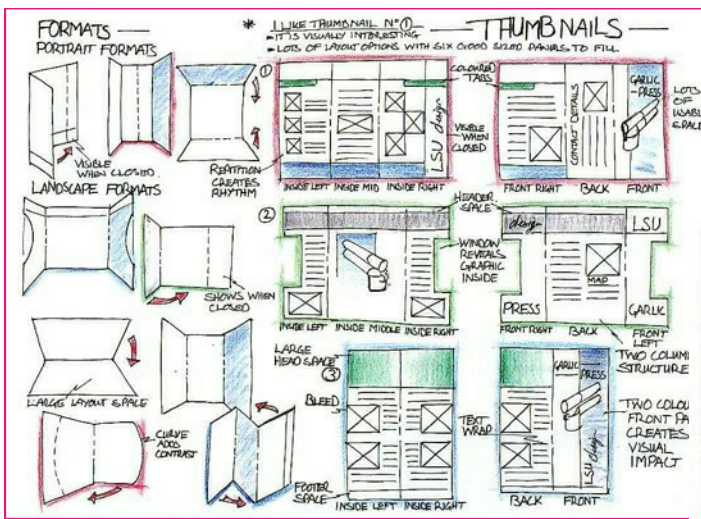 FORMATS
PORTRAIT FORMATS
VISIBLE
WHEN CLOSED.
LANDSCAPE FORMATS
SHOWS WHEN
CLOSED
LARGE LAYOUT SPACE
CURVE
ADDS
CONTRAST
* I LIKE THUMBNAIL Nº ①
- IT IS VISUALLY INTERESTING
- LOTS OF LAYOUT OPTIONS WITH SIX GOOD SIZED PANELS TO FILL
THUMBNAILS
①
COLOURED
TABS
REPITITION
CREATES
RHYTHM
LSU design
VISIBLE
WHEN
CLOSED
INSIDE LEFT INSIDE MID INSIDE RIGHT
CONTACT DETAILS
GARLIC
-PRESS
LOTS
OF
USABL
SPACE
FRONT RIGHT BACK FRONT
②
HEADER
SPACE
WINDOW
REVEALS
GRAPHIC
INSIDE
INSIDE LEFT INSIDE MIDDLE INSIDE RIGHT
design
LSU
MAP
PRESS
GARLIC
FRONT RIGHT BACK FRONT
LEFT
TWO COLUM
STRUCTURE
LARGE
HEAD SPACE
③
BLEED
FOOTER
SPACE
INSIDE LEFT INSIDE RIGHT
TEXT
WRAP
GARLIC
PRESS
LSU design
BACK FRONT
TWO COLOU
FRONT PA
CREATES
VISUAL
IMPACT